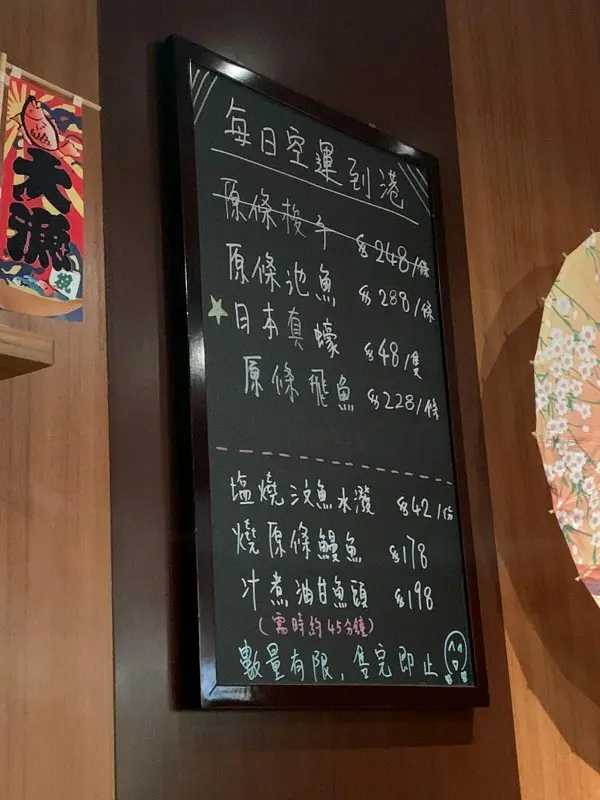 大漁
祝
每日空運到港
原條梭子 $248/條
原條池魚 $288/條
日本真蠔 $48/隻
原條飛魚 $228/條
塩燒三文魚水潑 $42/份
燒原條鰻魚 $178
汁煮油甘魚頭 $198
(需時約45分鐘)
數量有限，售完即止